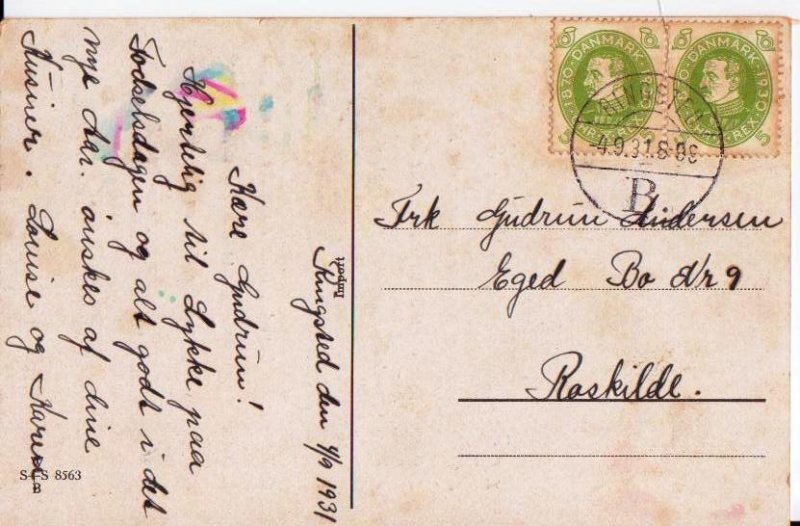 Ringsted den 4/9 1931
Kære Gudrun!
Hjertelig til Lykke paa
Fødselsdagen og alt godt i det
nye Aar. ønskes af dine
Kusiner. Louise og Karen
Import
S+S 8563
B
DANMARK
1870 1930
REX
5
DANMARK
1930
REX
5
RINGSTED
-4.9.31.8-9S
B
Frk Gudrun Andersen
Eged Bo Nr 9
Roskilde.